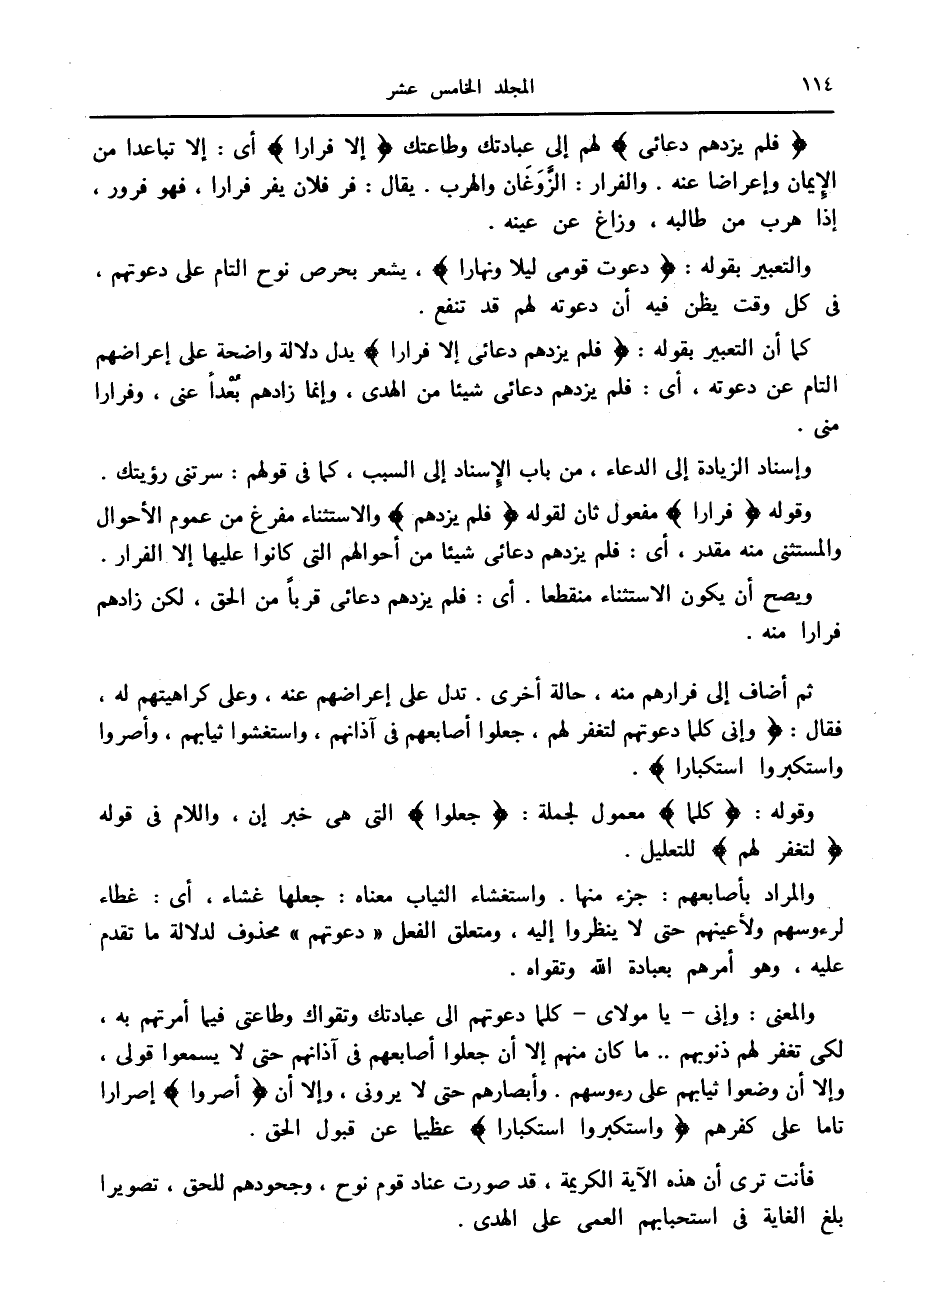 ١١٤ المجلد الخامس عشر
﴿ فلم يزدهم دعائى ﴾ لهم إلى عبادتك وطاعتك ﴿ إلا فرارا ﴾ أى : إلا تباعدا من
الإيمان وإعراضا عنه . والفرار : الزَّوَغَان والهرب . يقال : فر فلان يفر فرارا ، فهو فرور ،
إذا هرب من طالبه ، وزاغ عن عينه .
والتعبير بقوله : ﴿ دعوت قومى ليلا ونهارا ﴾ ، يشعر بحرص نوح التام على دعوتهم ،
فى كل وقت يظن فيه أن دعوته لهم قد تنفع .
كما أن التعبير بقوله : ﴿ فلم يزدهم دعائى إلا فرارا ﴾ يدل دلالة واضحة على إعراضهم
التام عن دعوته ، أى : فلم يزدهم دعائى شيئا من الهدى ، وإنما زادهم بُعْداً عنى ، وفرارا
منى .
وإسناد الزيادة إلى الدعاء ، من باب الإسناد إلى السبب ، كما فى قولهم : سرتنى رؤيتك .
وقوله ﴿ فرارا ﴾ مفعول ثان لقوله ﴿ فلم يزدهم ﴾ والاستثناء مفرغ من عموم الأحوال
والمستثنى منه مقدر ، أى : فلم يزدهم دعائى شيئا من أحوالهم التى كانوا عليها إلا الفرار .
ويصح أن يكون الاستثناء منقطعا . أى : فلم يزدهم دعائى قرباً من الحق ، لكن زادهم
فرارا منه .
ثم أضاف إلى فرارهم منه ، حالة أخرى . تدل على إعراضهم عنه ، وعلى كراهيتهم له ،
فقال : ﴿ وإنى كلما دعوتهم لتغفر لهم ، جعلوا أصابعهم فى آذانهم ، واستغشوا ثيابهم ، وأصروا
واستكبروا استكبارا ﴾ .
وقوله : ﴿ كلما ﴾ معمول لجملة : ﴿ جعلوا ﴾ التى هى خبر إن ، واللام فى قوله
﴿ لتغفر لهم ﴾ للتعليل .
والمراد بأصابعهم : جزء منها . واستغشاء الثياب معناه : جعلها غشاء ، أى : غطاء
لرءوسهم ولأعينهم حتى لا ينظروا إليه ، ومتعلق الفعل « دعوتهم » محذوف لدلالة ما تقدم
عليه ، وهو أمرهم بعبادة الله وتقواه .
والمعنى : وإنى – يا مولاى – كلما دعوتهم الى عبادتك وتقواك وطاعتى فيما أمرتهم به ،
لكى تغفر لهم ذنوبهم .. ما كان منهم إلا أن جعلوا أصابعهم فى آذانهم حتى لا يسمعوا قولى ،
وإلا أن وضعوا ثيابهم على رءوسهم . وأبصارهم حتى لا يرونى ، وإلا أن ﴿ أصروا ﴾ إصرارا
تاما على كفرهم ﴿ واستكبروا استكبارا ﴾ عظيما عن قبول الحق .
فأنت ترى أن هذه الآية الكريمة ، قد صورت عناد قوم نوح ، وجحودهم للحق ، تصويرا
بلغ الغاية فى استحبابهم العمى على الهدى .